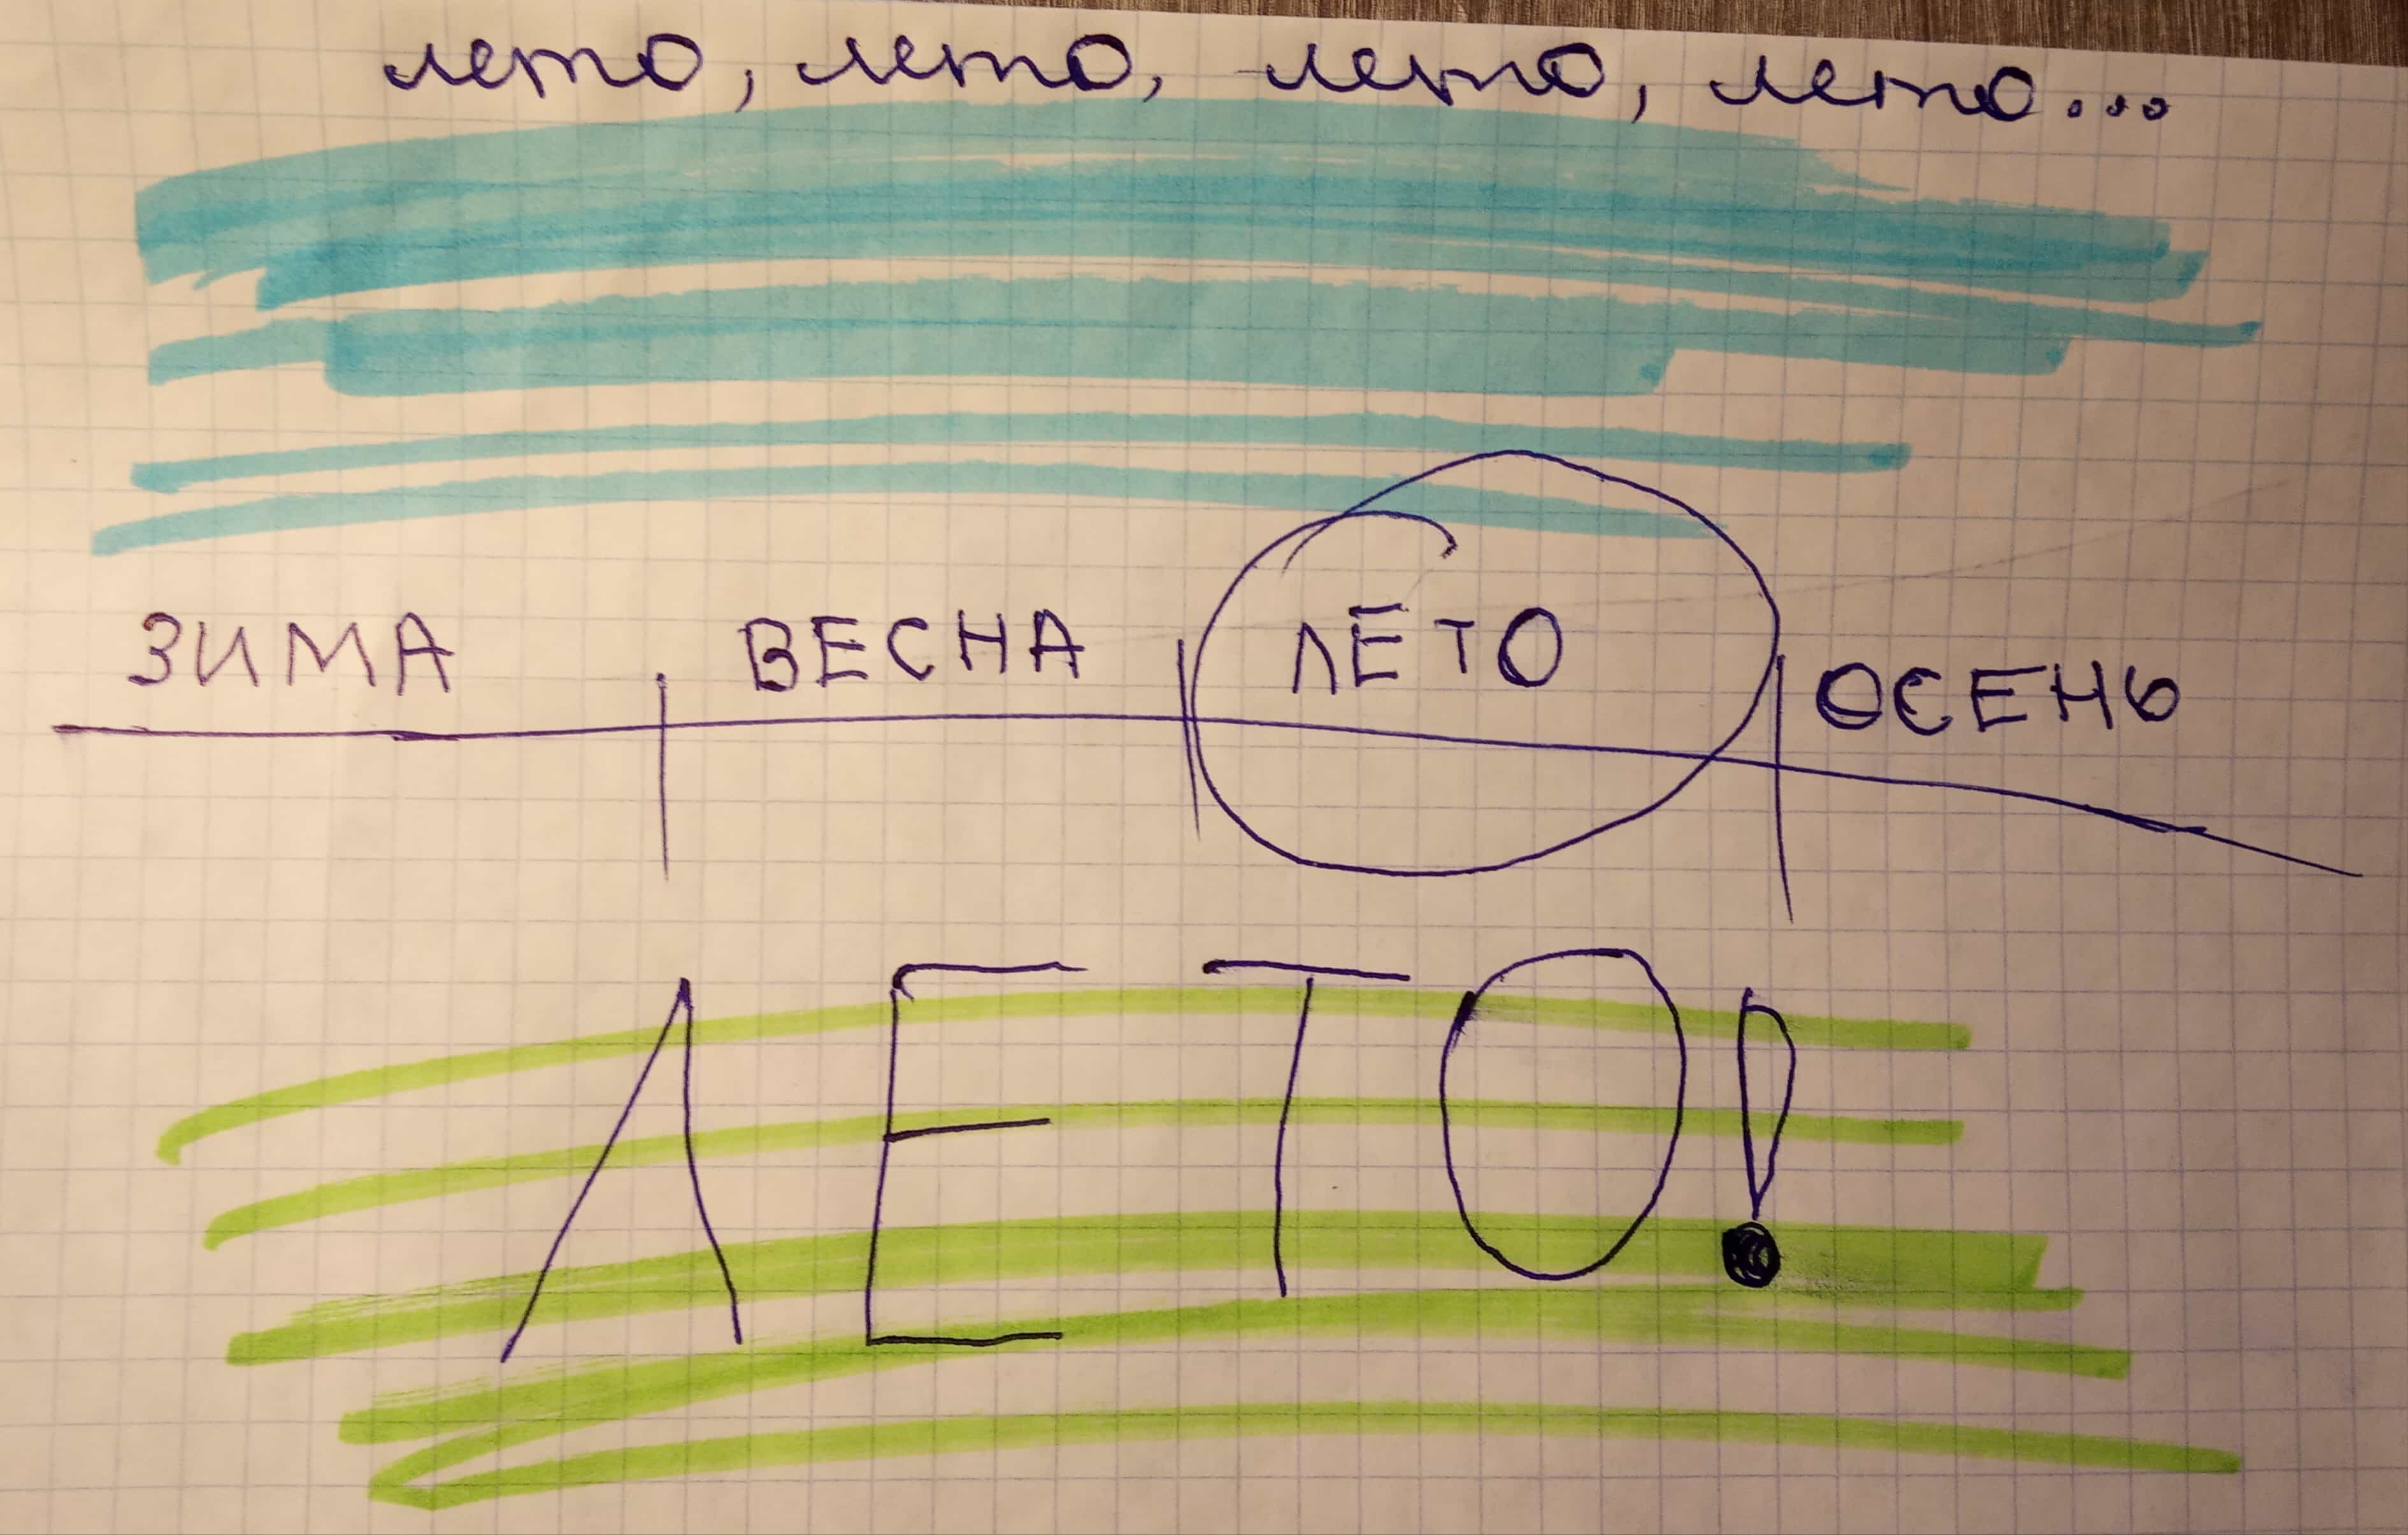 лето, лето, лето, лето...
ЗИМА ВЕСНА ЛЕТО ОСЕНЬ
ЛЕТО!